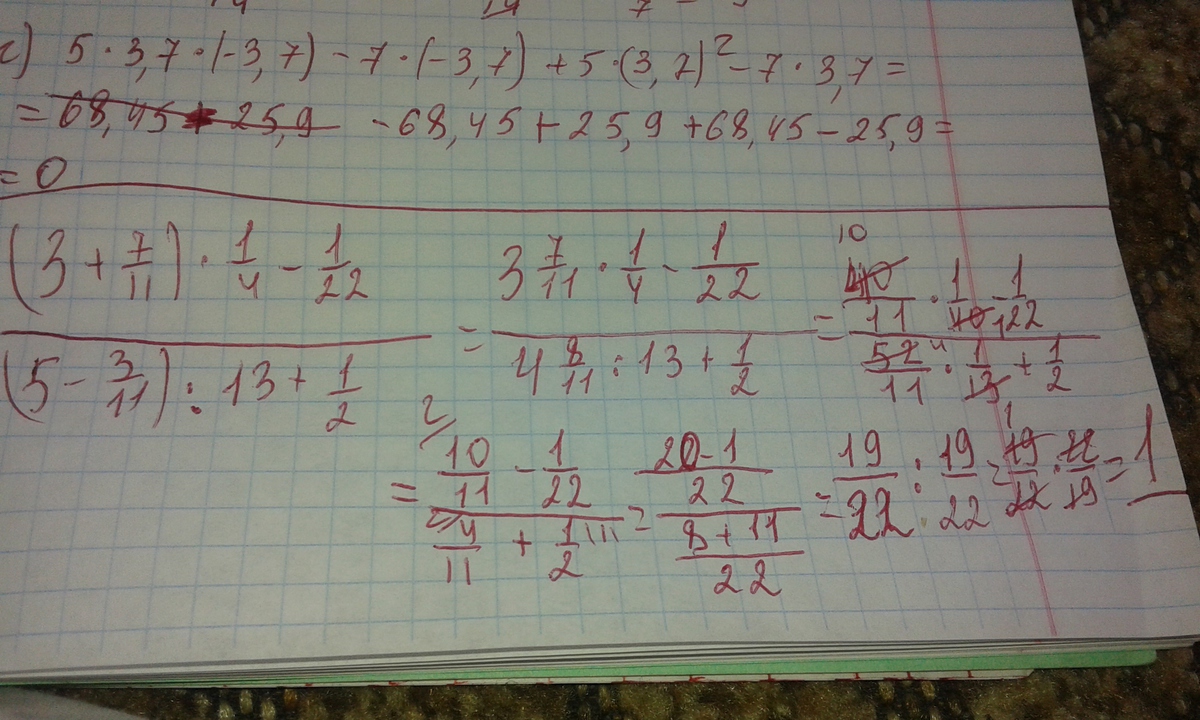 с) 5 · 3,7 · (-3,7) - 7 · (-3,7) + 5 · (3,7)² - 7 · 3,7 =
= 68,45 + 25,9 - 68,45 + 25,9 + 68,45 - 25,9 =
= 0
(3 + 7/11) · 1/4 - 1/22 / (5 - 3/11) : 13 + 1/2 = 3 7/11 · 1/4 - 1/22 / 4 8/11 : 13 + 1/2 = 40/11 · 1/ - 1/22 / 52/11 · 1/13 + 1/2
= 10/11 - 1/22 / 4/11 + 1/2 = 20-1/22 / 8+11/22 = 19/22 : 19/22 = 19/22 · 22/19 = 1